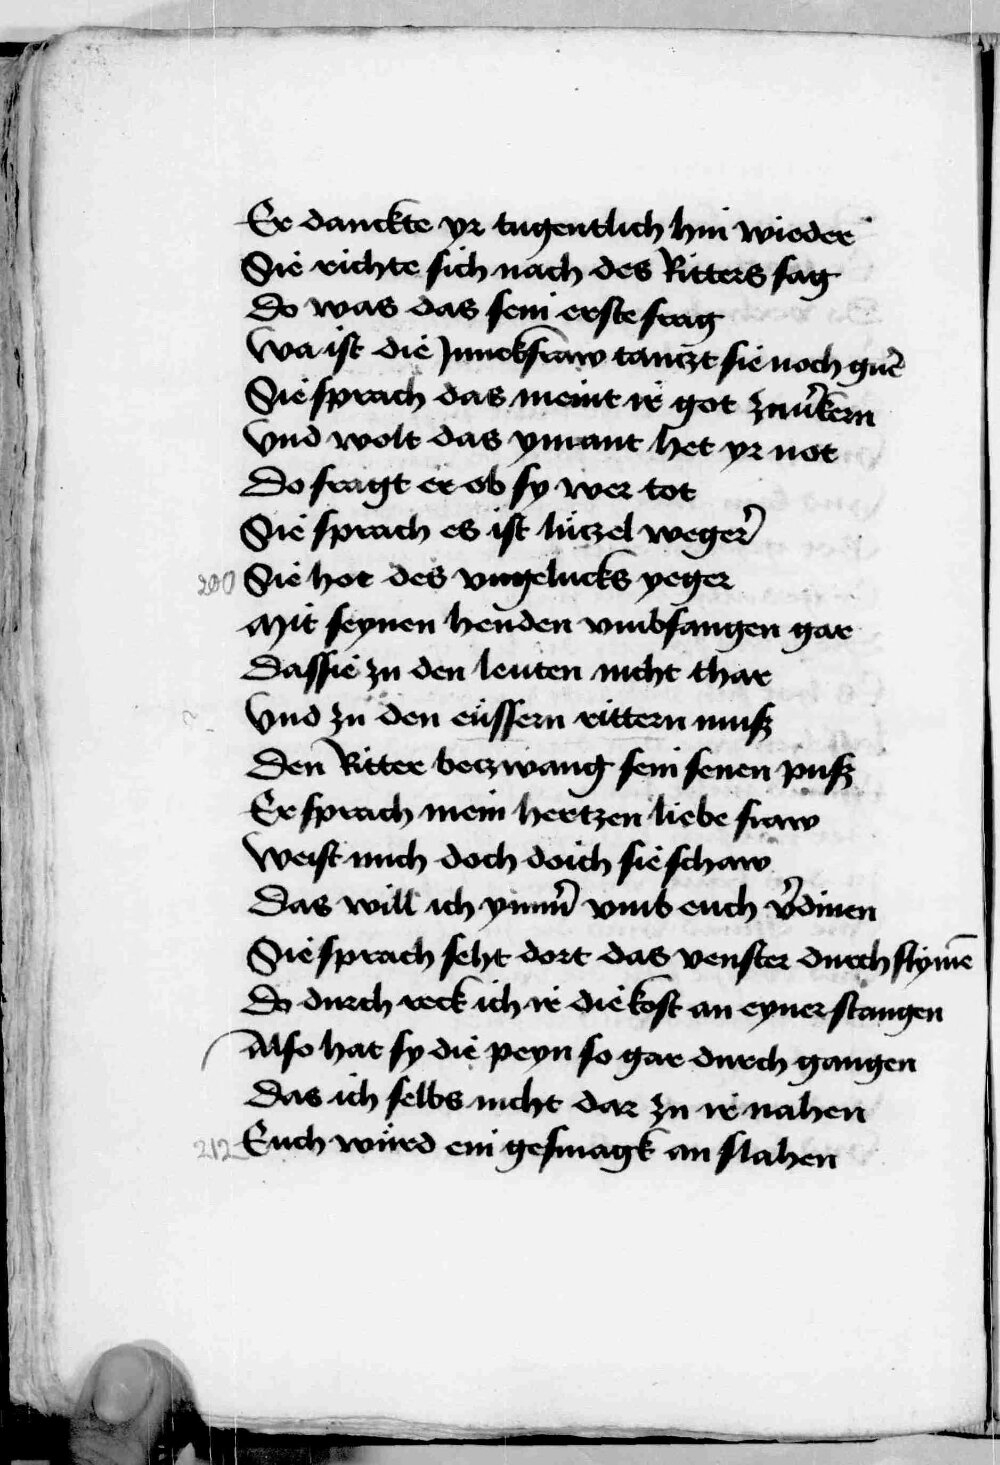 Er danckte yr tugentlich hin wieder
Sie richte sich nach des Ritters sag
Do was das sein erste frag
Wa ist die Junckfraw tanczt sie noch gnē
Sie sprach das meint ir got
Vnd wolt das ymant het yr not
Do fragt er ob sy wer tot
Sie sprach es ist lützel weger
200 Sie hot des vngelucks yeger
Mit seynen henden vmbfangen gar
Dassie zu den leuten nicht thar
Vnd zu den eüssern rittern musz
Den Ritter beczwang sein senen pusz
Er sprach mein hertzen liebe fraw
Weist mich doch doich sie schaw
Das will ich ymm̄ vmb euch v̄dinen
Sie sprach seht dort das venster durch slymē
Do durch reck ich ir die kost an eyner stangen
Also hat sy die peyn so gar durch gangen
Das ich selbs nicht dar zu ir nahen
212 Euch würd ein gesmagk an slahen